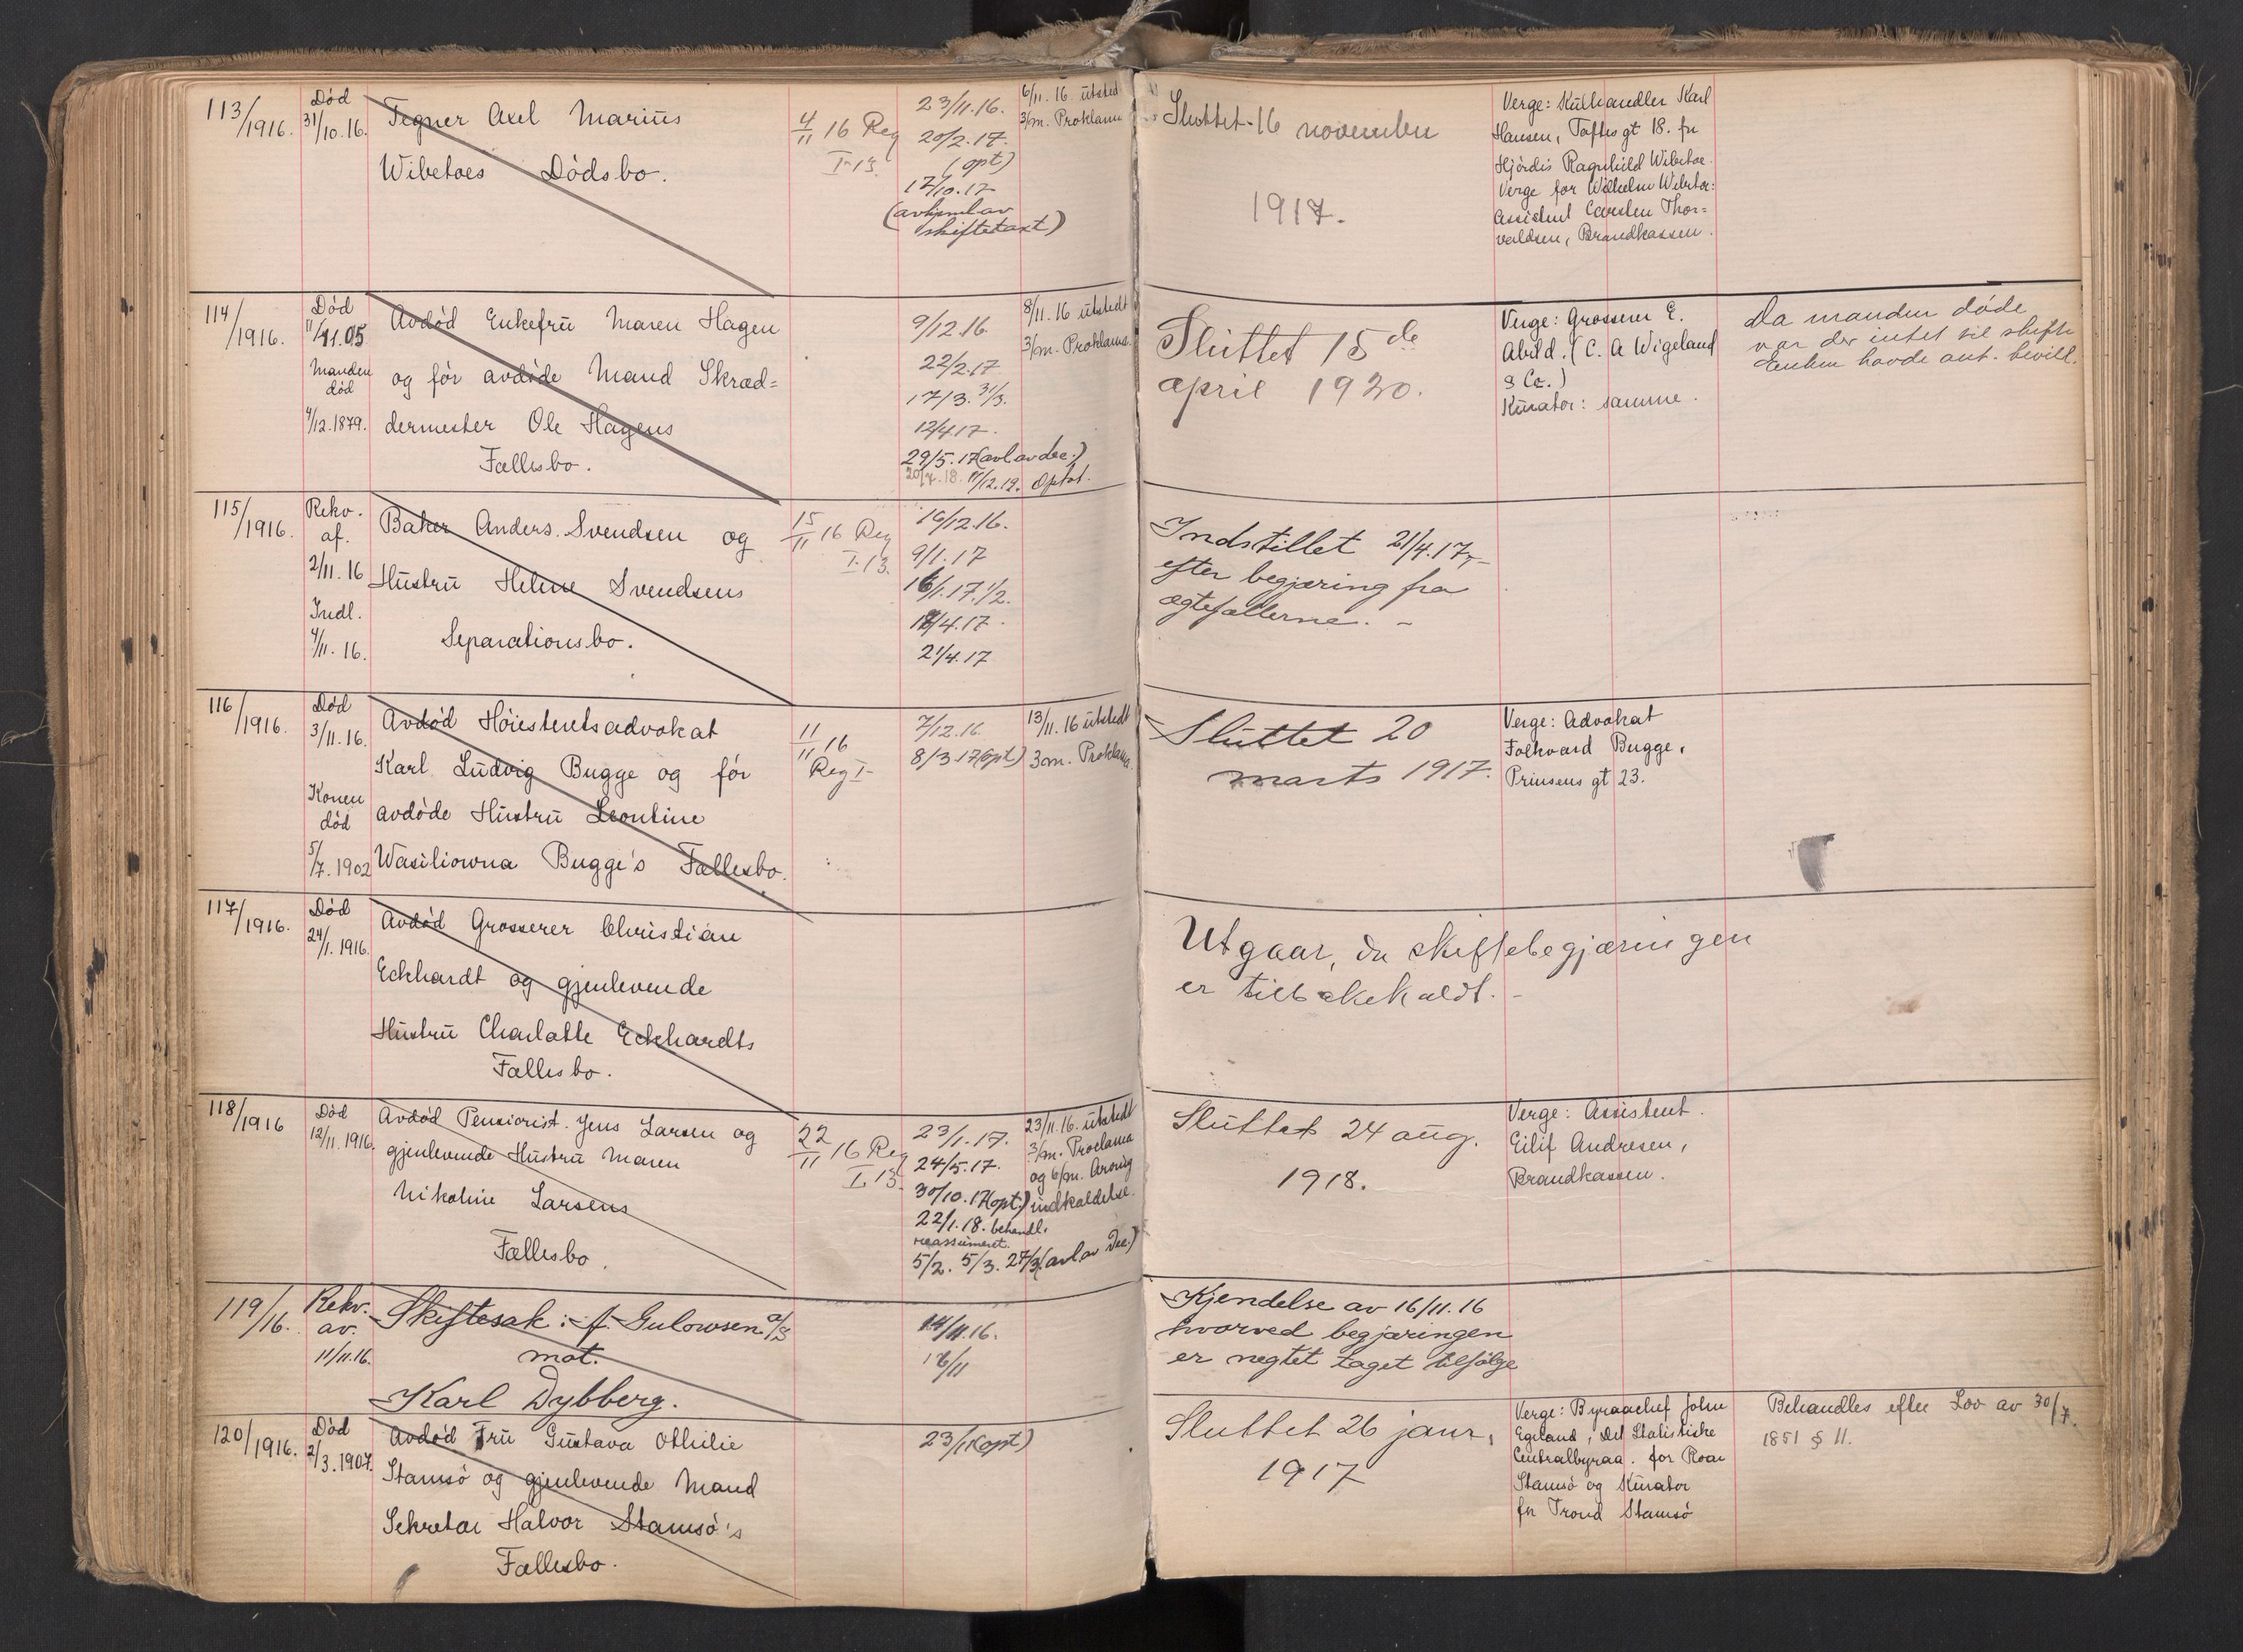 113/1916.
Død
31/10.16.
Tegner Axel Marius
Wibetoes Dødsbo.
4/11 16 Reg
I-13.
23/11.16.
20/2.17.
(opt)
17/10.17
(avhjemlav
skiftetaxt)
6/11.16. utsted
3/m. Proklama
Sluttet 16 november
1917.
Verge: Kulhandler Karl
Hansen, Toftes gt 18. for
Hjørdis Ragnhild Wibetoe.
Verge for Wilhelm Wibetoe:
Assistent Carsten Thor=
valdsen, Brandkassen.
114/1916.
Død
11/11.05
Manden
død
4/12.1879.
Avdød Enkefru Maren Hagen
og før avdøde Mand Skræd=
dermester Ole Hagens
Fællesbo.
9/12.16
22/2.17
17/3. 31/3.
12/4.17.
29/5.17(avl av dec.)
20/7.18. 11/12.19. Optat.
8/11.16 utstedt
3/m. Proklama.
Sluttet 15de
april 1920.
Verge: Grosserer E.
Abild. (C. A Wigeland
& Co.)
Kurator: samme.
Da manden døde
var der intet til skifte
Enken havde ant. bevill.
115/1916.
Rekv.
af.
2/11.16
Indl.
4/11.16.
Baker Anders Svendsen og
Hustru Helene Svendsens
Separationsbo.
15/11 16 Reg
I-13.
16/12.16.
9/1.17
16/1.17. 1/2.
18/4.17.
21/4.17
Indstillet 21/4.17,-
efter begjæring fra
ægtefællerne. -
116/1916.
Død
3/11.16.
Konen
død
5/7.1902
Avdød Høiesteretsadvokat
Karl Ludvig Bugge og før
avdøde Hustru Leontine
Wasiliowna Bugge's Fællesbo.
11/11 16
Reg I-
7/12.16
8/3.17(opt)
13/11.16 utstedt
3m. Proklama.
Sluttet 20
marts 1917.
Verge: Advokat
Folkvard Bugge,
Prinsens gt 23.
117/1916.
Død
24/1.1916.
Avdød Grosserer Christian
Eckhardt og gjenlevende
Hustru Charlotte Eckhardts
Fællesbo.
Utgaar, da skiftebegjæringen
er tilbakekaldt. -
118/1916
Død
12/11.1916.
Avdød Pensionist Jens Larsen og
gjenlevende Hustru Maren
Nikoline Larsens
Fællesbo.
22/11 16 Reg
I-13.
23/1.17.
24/5.17.
30/10.17(opt.)
22/1.18. behandl.
reassumeret.
5/2. 5/3. 27/3(avl. av Dec.)
23/11.16. utstedt
3/m. Proclama
og 6/m. Arving
indkaldelse.
Sluttet 24 aug.
1918.
Verge: Assistent
Eilif Andresen,
Brandkassen.
119/16.
Rekv.
av.
11/11.16.
Skiftesak: A. Gulowsen a/s
mot.
Karl Dybberg.
14/11.16.
16/11
Kjendelse av 16/11.16
hvorved begjæringen
er negtet taget tilfølge
120/1916.
Død
2/3.1907.
Avdød Fru Gustava Othilie
Stamsø og gjenlevende Mand
Sekretær Halvor Stamsø's
Fællesbo.
23/1(opt)
Sluttet 26 janr,
1917
Verge: Byraachef John
Egeland, Det Statistiske
Centralbyraa. for Roar
Stamsø og Kurator
for Trond Stamsø
Behandles efter Lov av 30/7.
1851 § 11.